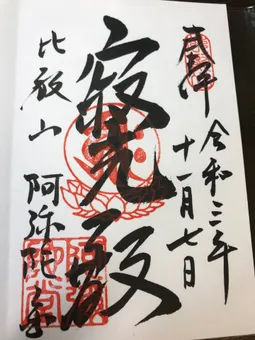 奉拝
令和三年
十一月七日
寂光殿
比叡山
阿弥陀堂